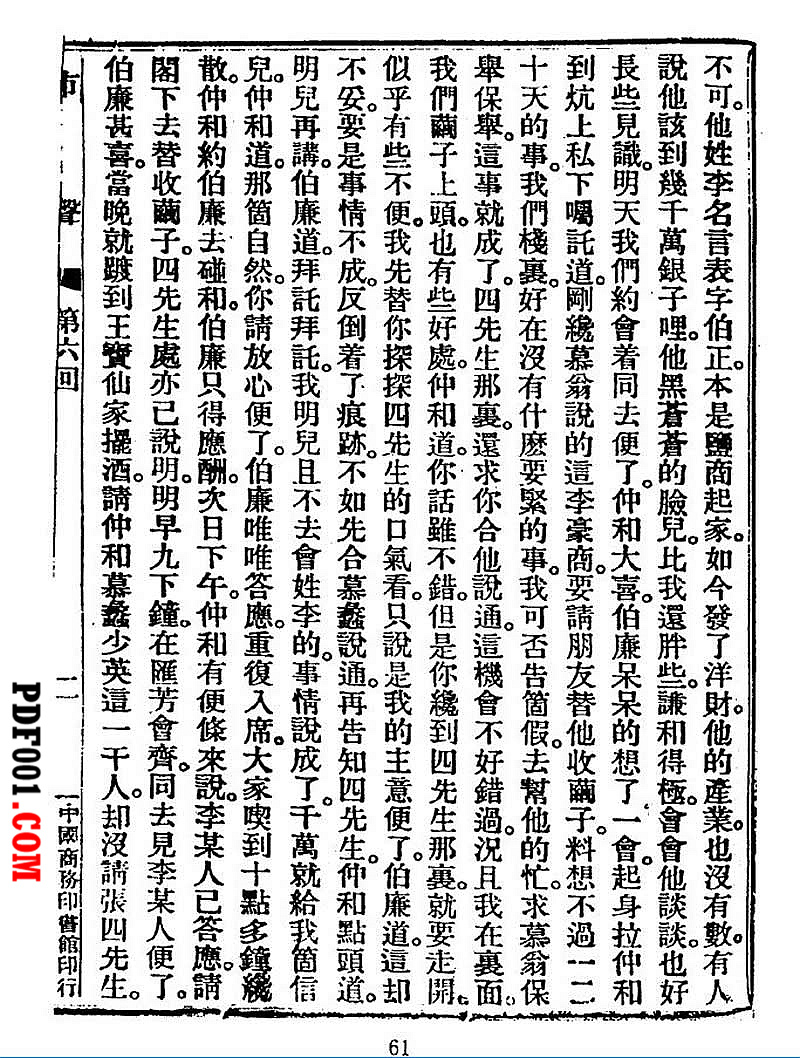 不可。他姓李名言表字伯正。本是鹽商起家。如今發了洋財。他的產業。也沒有數。有人
說他該到幾千萬銀子哩。他黑蒼蒼的臉兒。比我還胖些。謙和得極。會會他談談。也好
長些見識。明天我們約會着同去便了。仲和大喜。伯廉呆呆的想了一會。起身拉仲和
到炕上私下囑託道。剛纔慕翁說的這李豪商。要請朋友替他收繭子。料想不過一二
十天的事。我們棧裏。好在沒有什麽要緊的事。我可否告箇假。去幫他的忙。求慕翁保
舉保舉。這事就成了。四先生那裏。還求你合他說通。這機會不好錯過。況且我在裏面。
我們繭子上頭。也有些好處。仲和道。你話雖不錯。但是你纔到四先生那裏。就要走開。
似乎有些不便。我先替你探探四先生的口氣看。只說是我的主意便了。伯廉道。這却
不妥。要是事情不成。反倒着了痕跡。不如先合慕蠡說通。再告知四先生。仲和點頭道。
明兒再講。伯廉道。拜託拜託。我明兒且不去會姓李的。事情說成了。千萬就給我箇信
兒。仲和道。那箇自然。你請放心便了。伯廉唯唯答應。重復入席。大家喫到十點多鐘纔
散。仲和約伯廉去碰和。伯廉只得應酬。次日下午。仲和有便條來說。李某人已答應。請
閣下去替收繭子。四先生處亦已說明。明早九下鐘。在匯芳會齊。同去見李某人便了。
伯廉甚喜。當晚就踱到王寶仙家擺酒。請仲和慕蠡少英這一干人。却沒請張四先生。
市 聲 第六回
二
中國商務印書館印行
61
PDF001.COM